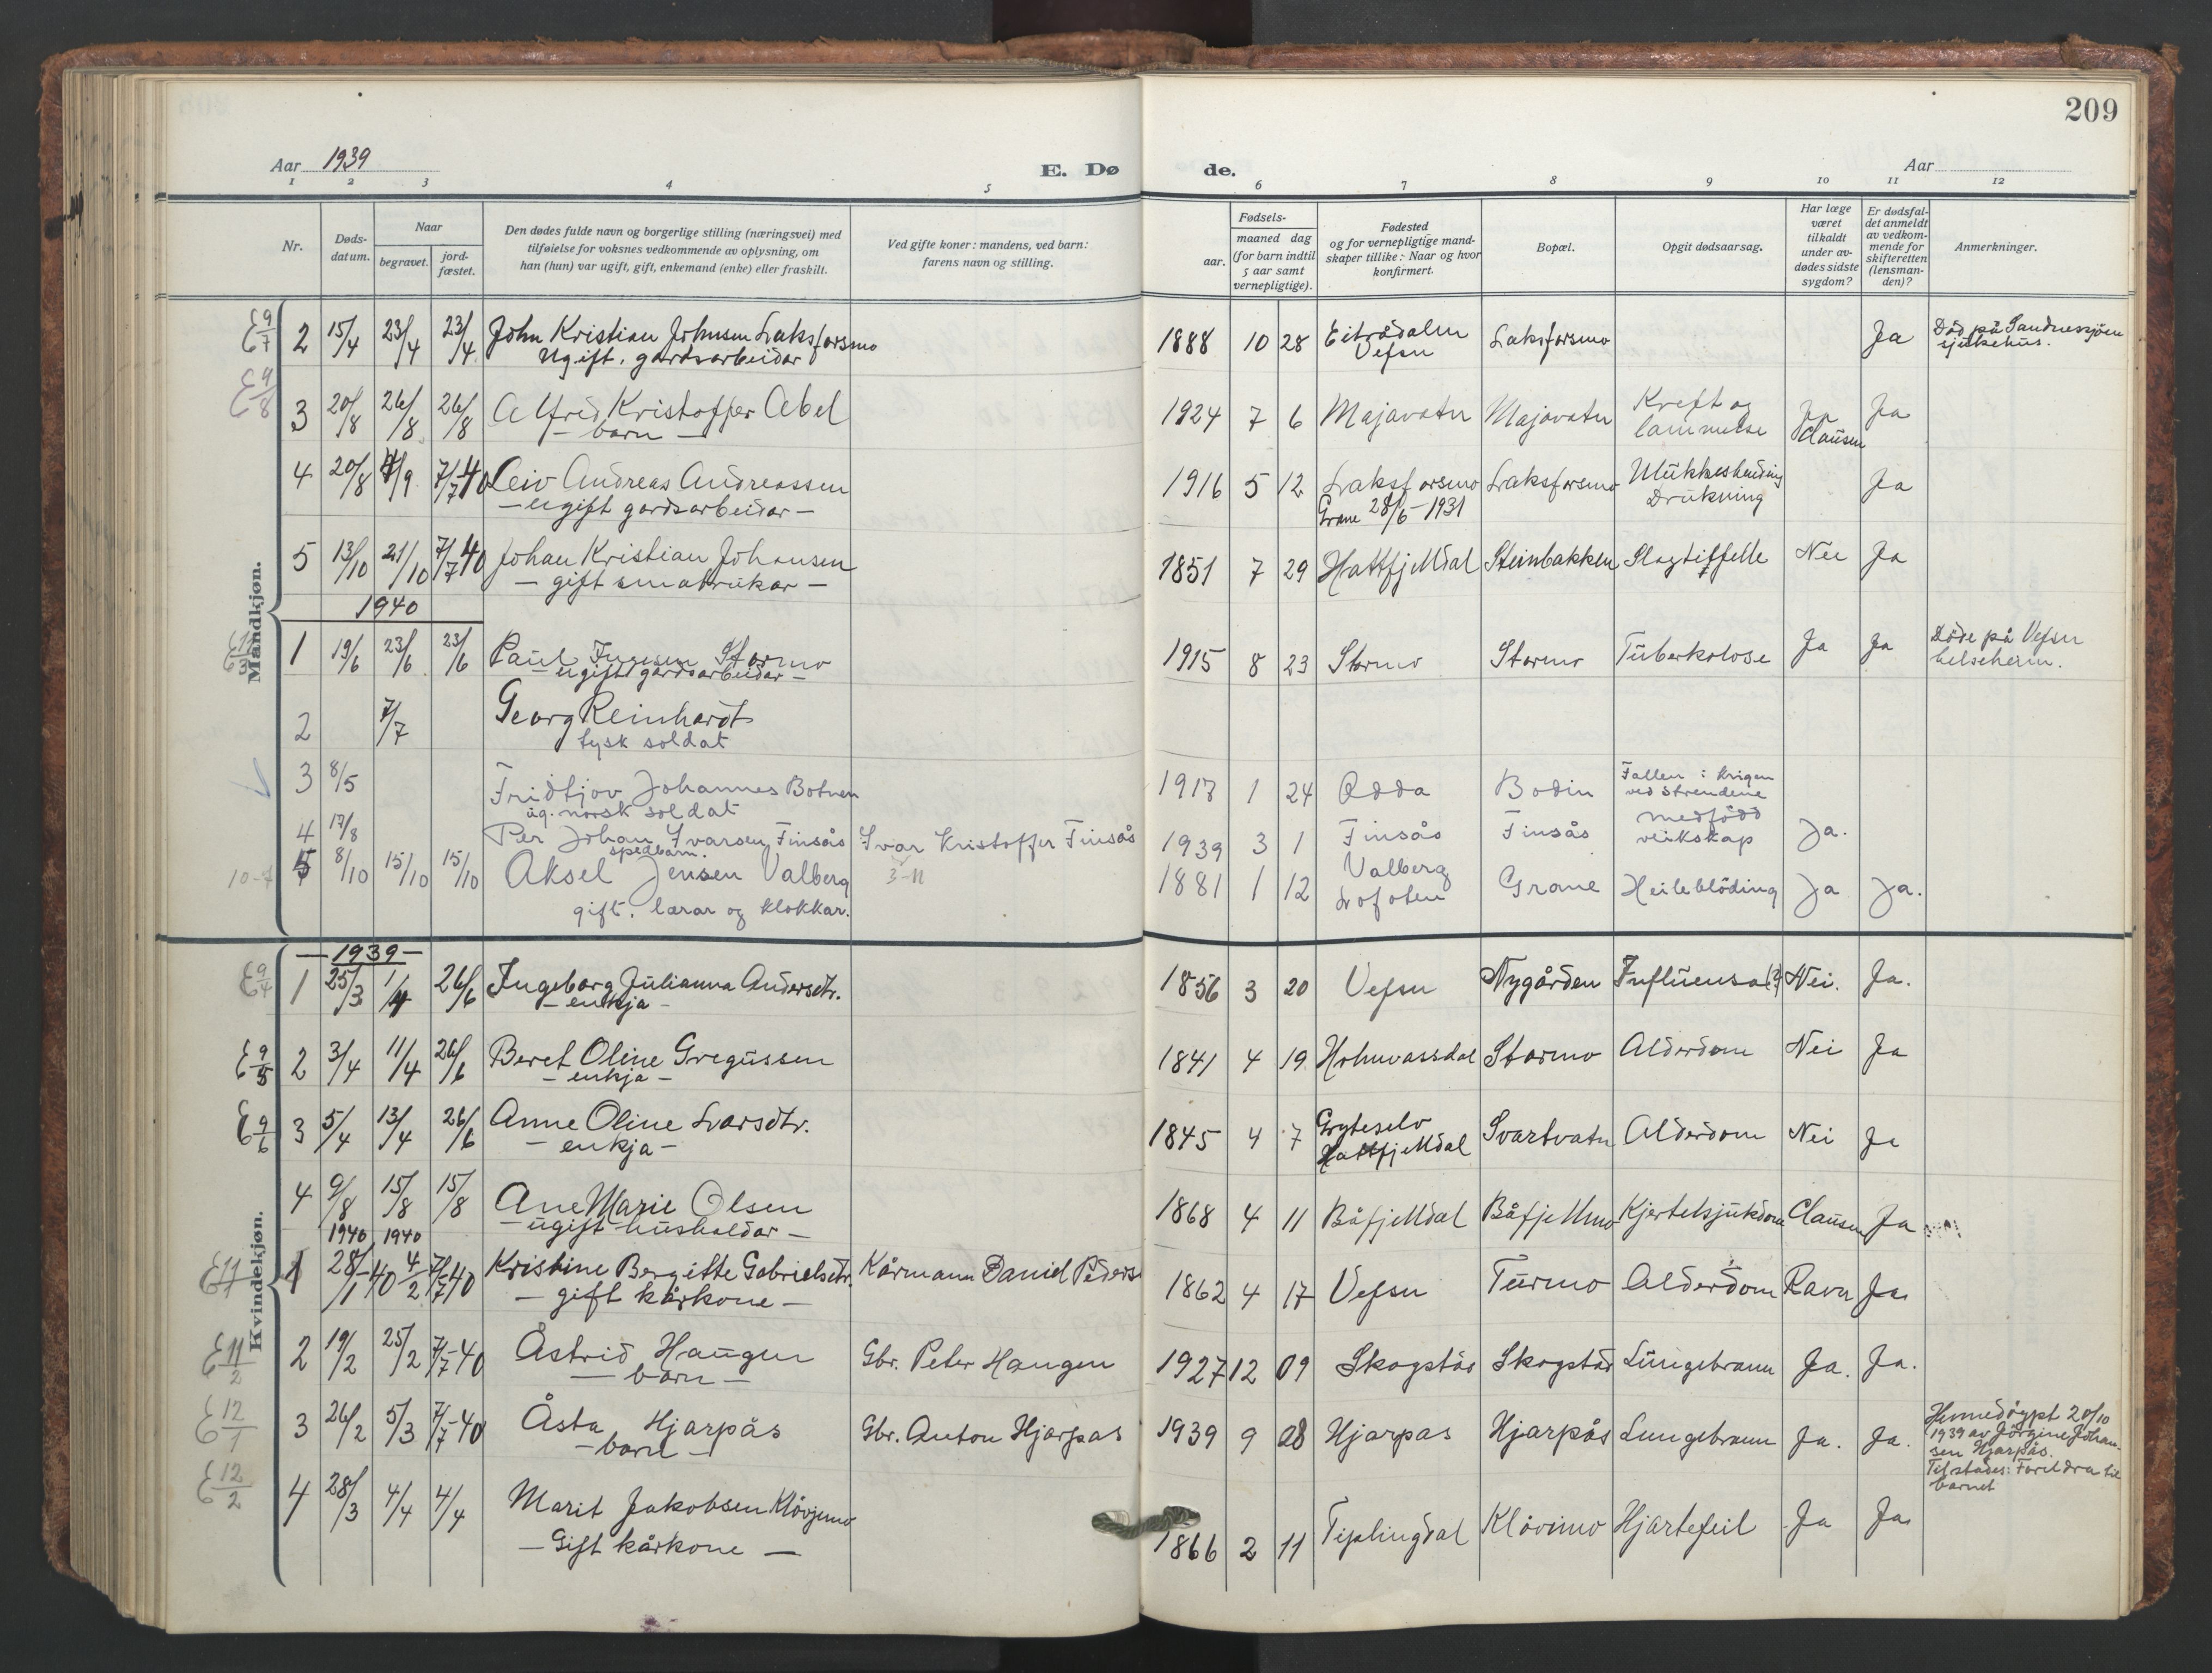 209
Aar 1939
E. Dø
de.
Aar
1 2 3 4 5 6 7 8 9 10 11 12
Nr.
Døds-
datum.
Naar
begravet.
jord-
fæstet.
Den dødes fulde navn og borgerlige stilling (næringsvei) med
tilføielse for voksnes vedkommende av oplysning, om
han (hun) var ugift, gift, enkemand (enke) eller fraskilt.
Ved gifte koner: mandens, ved barn:
farens navn og stilling.
Fødsels-
aar.
maaned dag
(for barn indtil
5 aar samt
vernepligtige).
Fødested
og for vernepligtige mand-
skaper tillike: Naar og hvor
konfirmert.
Bopæl.
Opgit dødsaarsag.
Har læge
været
tilkaldt
under av-
dødes sidste
sygdom?
Er dødsfal-
det anmeldt
av vedkom-
mende for
skifteretten
(lensman-
den)?
Anmerkninger.
Mandkjøn.
E 9/7 2 15/4 23/4 23/4 John Kristian Johnsen Laksforsmo 1888 10 28 Eiterådalen Laksforsmo Ja Død på Sandnessjøen
Ugift. gardsarbeidar Vefsn sjukehus.
E 9/8 3 20/8 26/8 26/8 Alfred Kristoffer Abel 1924 7 6 Majavatn Majavatn Kreft og Ja Ja
— barn — lammelse Clausen
4 20/8 4/9 7/7-40 Leiv Andreas Andreassen 1916 5 12 Laksforsmo Laksforsmo Ulukkeshending Ja
— ugift gardsarbeidar — Grane 28/6-1931 Drukning
5 13/10 21/10 7/7 40 Johan Kristian Johansen 1851 7 29 Hattfjelldal Steinbakken Slagtilfelle Nei Ja
— gift småbrukar —
1940
1 19/6 23/6 23/6 Paul Stormo 1915 8 23 Stormo Stormo Tuberkolose Ja Ja Døde på Vefsn
— ugift gardsarbeidar — helseheim.
2 7/7 Georg Reinhardt
tysk soldat
3 8/5 Fridtjov Johannes Botnen 1917 1 24 Odda Bodin Fallen i krigen
ug. norsk soldat ved Strendene
4 17/8 Per Johan Ivarsen Finsås Ivar Kristoffer Finsås 1939 3 1 Finsås Finsås medfødd Ja.
spedbarn. veikskap
10-7 5 8/10 15/10 15/10 Aksel Jensen Valberg 3-11 1881 1 12 Valberg Grane Heileblöding Ja Ja.
gift. lærar og klokkar. Lofoten
Kvindekjøn.
— 1939 —
E 9/4 1 25/3 1/4 26/6 Ingeborg Julianna Andersdtr. 1856 3 20 Vefsn Nygården Influensa(?) Nei. Ja.
— enkja —
E 9/5 2 3/4 11/4 26/6 Beret Oline Gregussen 1841 4 19 Holmvassdal Stormo Alderdom Nei Ja
— enkja —
E 9/6 3 5/4 13/4 26/6 Anne Oline Larsdtr. 1845 4 7 Gryteselv Svartvatn Alderdom Nei Ja
— enkja — Hattfjelldal
4 9/8 15/8 15/8 Ane Marie Olsen 1868 4 11 Båfjelldal Båfjellmo Kjertelsjukdom Clausen Ja
— ugift husholdar —
1940 1940
E 11/1 1 28/1-40 4/2 7/7-40 Kristine Bergitte Gabrielsdtr. Kårmann Daniel Peders 1862 4 17 Vefsn Turmo Alderdom Ravn Ja
— gift kårkone —
E 11/2 2 19/2 25/2 7/7-40 Åstrid Haugen Gbr. Peter Haugen 1927 12 09 Skogstås Skogstås Lungebrann Ja. Ja.
— barn —
E 12/1 3 26/2 5/3 7/7-40 Åsta Hjarpås Gbr. Anton Hjarpås 1939 9 28 Hjarpås Hjarpås Lungebrann Ja. Ja. Heimedøypt 20/10
— barn — 1939 av Jörgine Johan-
sen Hjarpås.
Tilstades: Foreldra til
barnet
E 12/2 4 28/3 4/4 4/4 Marit Jakobsen Klövjemo 1866 2 11 Tiplingdal Klövimo Hjartefeil Ja Ja
— Gift kårkone —